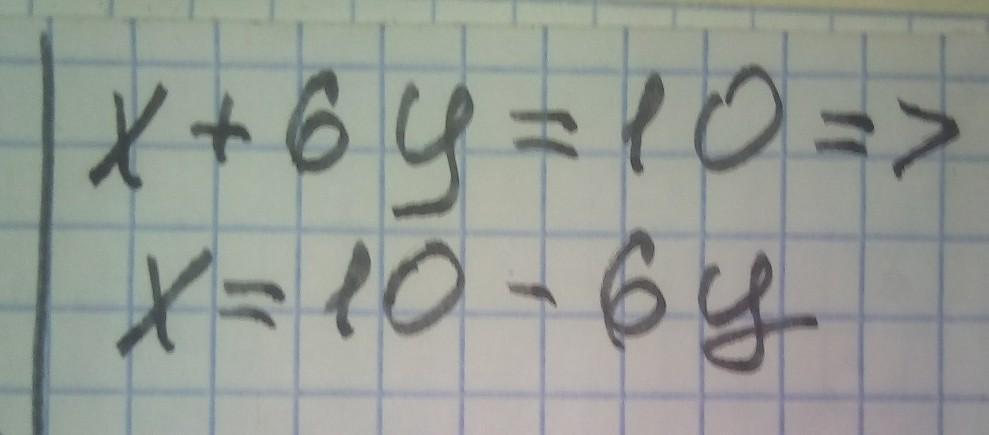 x + 6y = 10 =>
x = 10 - 6y